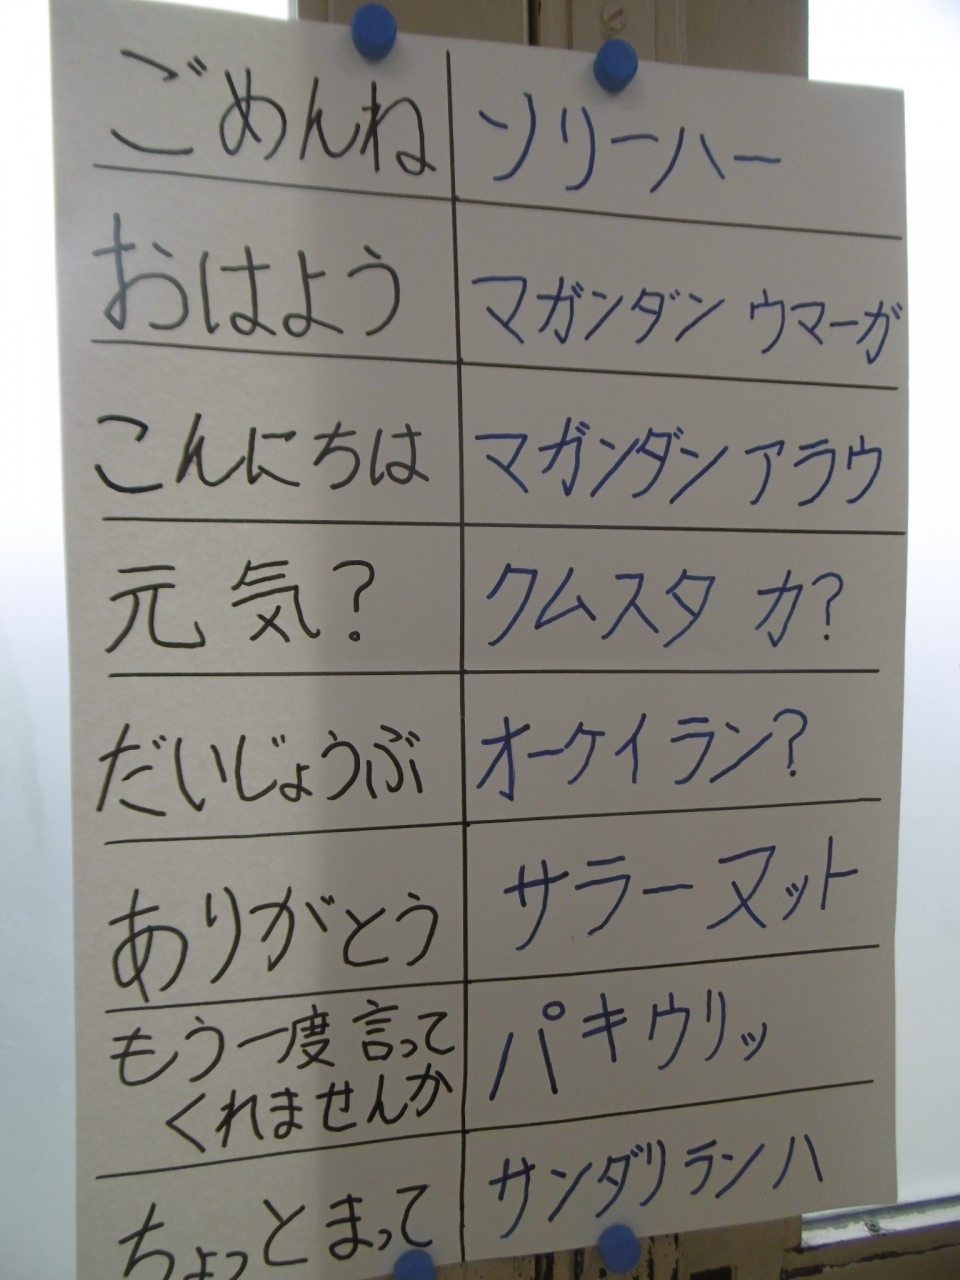 ごめんね ソリーハー
おはよう マガンダン ウマーガ
こんにちは マガンダン アラウ
元気? クムスタ カ?
だいじょうぶ オーケイ ラン?
ありがとう サラーマット
もう一度言って
くれませんか パキウリッ
ちょっとまって サンダリ ラン ハ